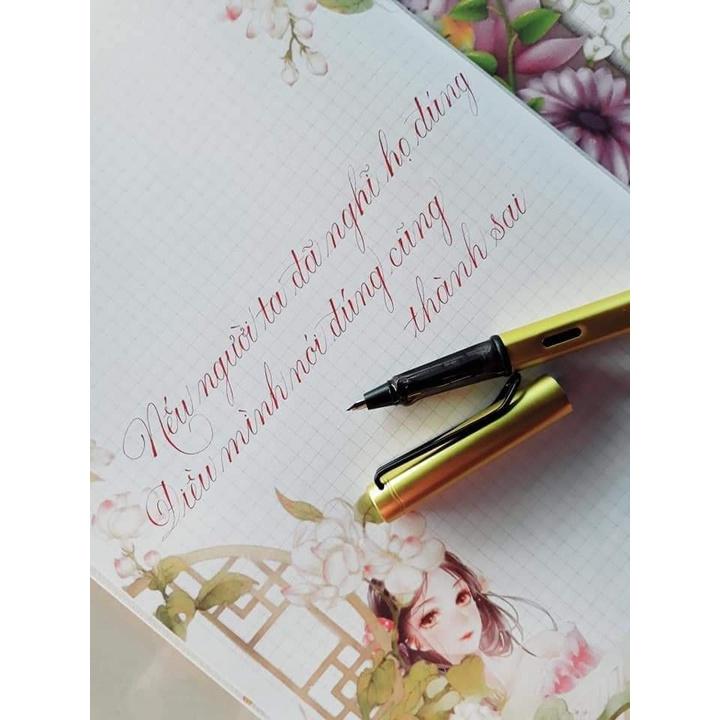 Nếu người ta đã nghĩ họ đúng
Điều mình nói đúng cũng
thành sai